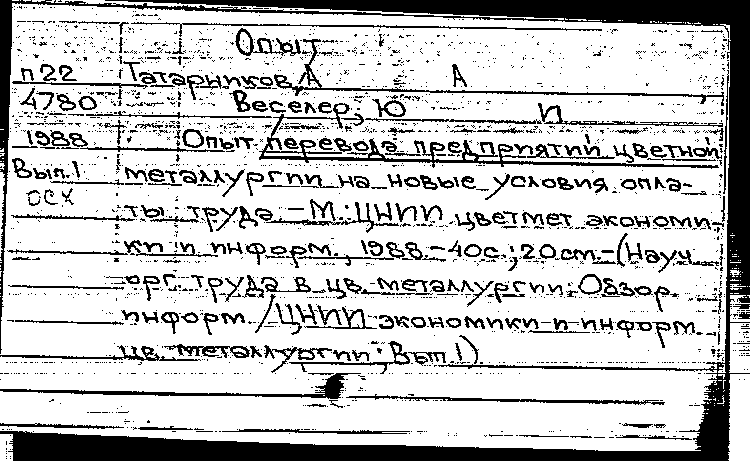 Опыт
п22 Татарников, А А
4780 Веселер, Ю И
1988 Опыт перевода предприятий цветной
Вып.1 металлургии на новые условия опла-
осх ты труда.-М.:ЦНИИ цветмет экономи-
ки и информ., 1988.-40с.;20см.-(Науч.
орг. труда в цв. металлургии: Обзор.
информ. /ЦНИИ экономики и информ.
цв. металлургии; Вып.1)